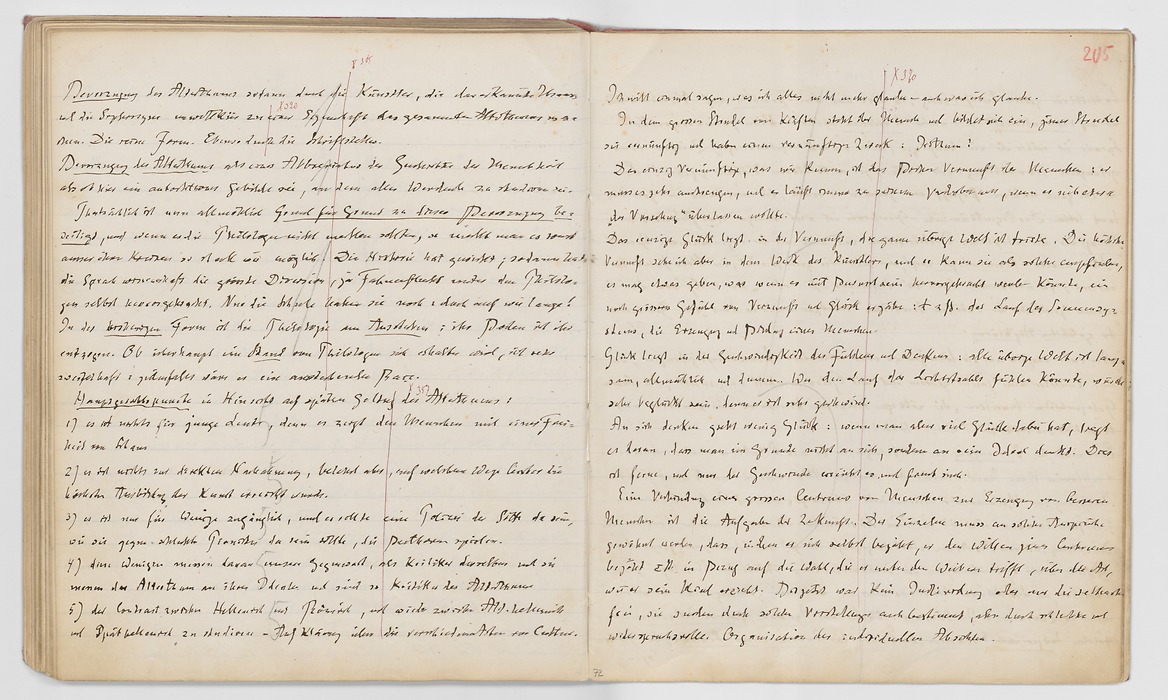 X 305
X 320
Bevorzugung des Alterthums sodann durch die Künstler, die
und die Sophrosyne unwillkürlich zu einer Eigenschaft des gesammten Alterthums ma-
chen. Die reine Form. Ebenso durch die Schriftsteller.
Bevorzugung des Alterthums als eines Abbreviatur der Geschichte der Menschheit
als ob hier ein autochthones Gebilde sei, an dem alles Werdende zu studieren sei.
Thatsächlich ist nun allmählich Grund für Grund zu dieser Bevorzugung be-
seitigt, und wenn es die Philologen nicht merken sollten, so merkt man es sonst
ausser ihren Kreisen so stark wie möglich. Die Historie hat gewirkt; sodann hat
die Sprachwissenschaft die grösste Diversion, ja Fahnenflucht unter den Philolo-
gen selbst hervorgebracht. Nur die Schule haben sie noch: doch auf wie lange!
In der bisherigen Form ist die Philologie am Aussterben: ihr Boden ist ihr
entzogen. Ob überhaupt ein Stand von Philologen sich erhalten wird, ist sehr
zweifelhaft: jedenfalls wäre es eine aussterbende Race.
X 312
Hauptgesichtspuncte in Hinsicht auf spätere Geltung des Alterthums:
1) es ist nichts für junge Leute, denn es zeigt den Menschen mit einer Frei-
heit von Scham
2) es ist nichts zur direkten Nachahmung, belehrt aber, auf welchem Wege bisher die
höchste Ausbildung der Kunst erreicht wurde.
3) es ist nur für Wenige zugänglich, und es sollte eine Polizei der Sitte da sein,
wie sie gegen schlechte Pianisten da sein sollte, die Beethoven spielen.
4) diese Wenigen messen daran unsere Gegenwart, als Kritiker derselben und sie
messen das Alterthum an ihren Idealen und sind so Kritiker des Alterthums
5) der Contrast zwischen Hellenisch und Römisch, und wieder zwischen Alt-hellenisch
und Spät-hellenisch zu studieren – Aufklärung über die verschiedenen Arten von Cultur.
205
X 320
Ich will einmal sagen, was ich alles nicht mehr glaube – auch was ich glaube.
In dem grossen Strudel von Kräften steht der Mensch und bildet sich ein, jener Strudel
sei vernünftig und habe einen vernünftigen Zweck: Irrthum!
Das einzig Vernünftige, was wir kennen, ist das Bischen Vernunft des Menschen: er
muss es sehr anstrengen, und es läuft immer zu seinem Verderben aus, wenn er sich etwa
„der Vorsehung“ überlassen wollte.
Das einzige Glück liegt in der Vernunft, die ganze übrige Welt ist triste. Die höchste
Vernunft sehe ich aber in dem Werk des Künstlers, und er kann sie als solche empfinden;
es mag etwas geben, was wenn es mit Bewusstsein hervorgebracht werden könnte, ein
noch grösseres Gefühl von Vernunft und Glück ergäbe: z.B. der Lauf des Sonnensy-
stems, die Erzeugung und Bildung eines Menschen.
Glück liegt in der Geschwindigkeit des Fühlens und Denkens: alle übrige Welt ist lang-
sam, allmählich und dumm. Wer den Lauf des Lichtstrahls fühlen könnte, würde
sehr beglückt sein, denn er ist sehr geschwind.
An sich denken giebt wenig Glück: wenn man aber viel Glück dabei hat, liegt
es daran, dass man im Grunde nicht an sich, sondern an sein Ideal denkt. Dies
ist ferne, und nur der Geschwinde erreicht es und freut sich.
Eine Verbindung eines grossen Centrums von Menschen zur Erzeugung von besseren
Menschen ist die Aufgabe der Zukunft. Der Einzelne muss an solche Ansprüche
gewöhnt werden, dass, indem er sich selbst bejaht, er den Willen jenes Centrums
bejaht z.B. in Bezug auf die Wahl, die er unter den Weibern trifft, über die Art,
wie er sein Kind erzieht. Bis jetzt war kein Individuum oder nur die seltensten
frei, sie wurden durch solche Vorstellungen auch bestimmt, aber durch schlechte und
widerspruchsvolle. Organisation der individuellen Absichten.
72